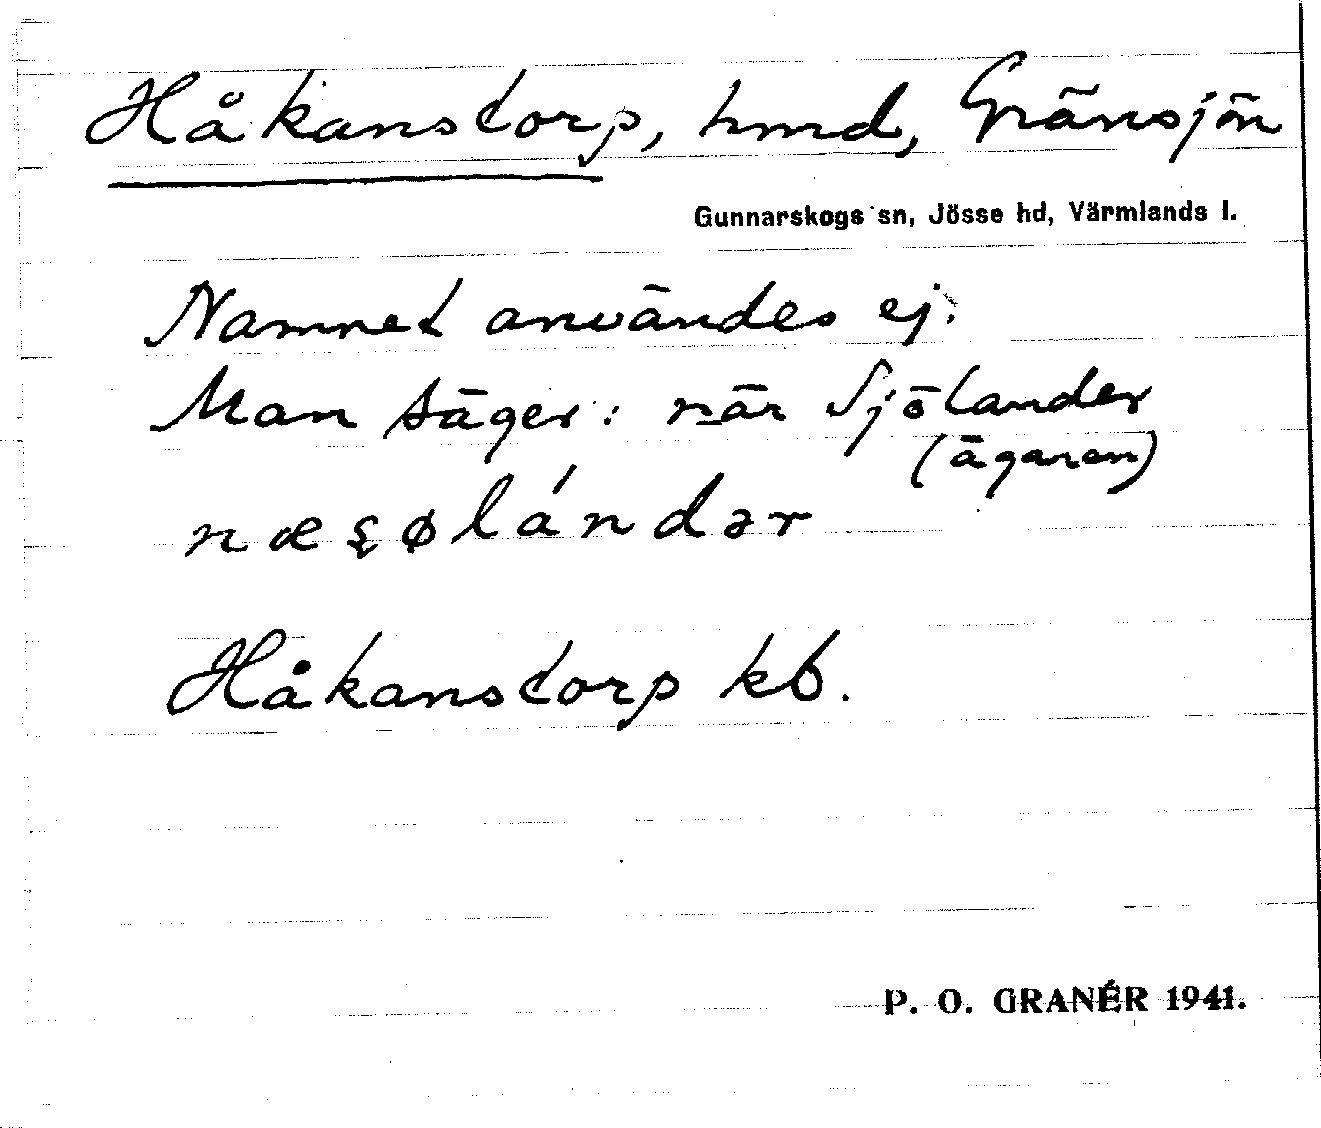 Håkanstorp, hmd, Gränsjön
Gunnarskogs sn, Jösse hd, Värmlands l.
Namnet användes ej.
Man säger: när Sjölander
(ägaren)
næʂølándər
Håkanstorp kb.
P. O. GRANÉR 1941.